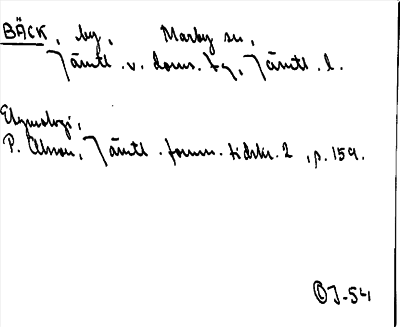 BÄCK, by, Marby sn,
Jämtl. v. doms. tg, Jämtl. l.
Etymologi,
P. Olsson, Jämtl. fornm. tidskr. 2, p. 159.
OJ-54